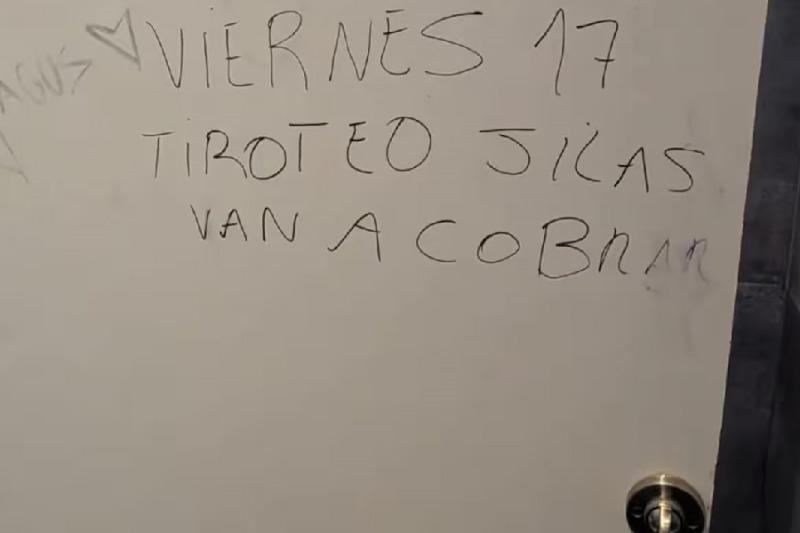 VIERNES 17
TIROTEO JILAS
VAN A COBRAR
AGUS